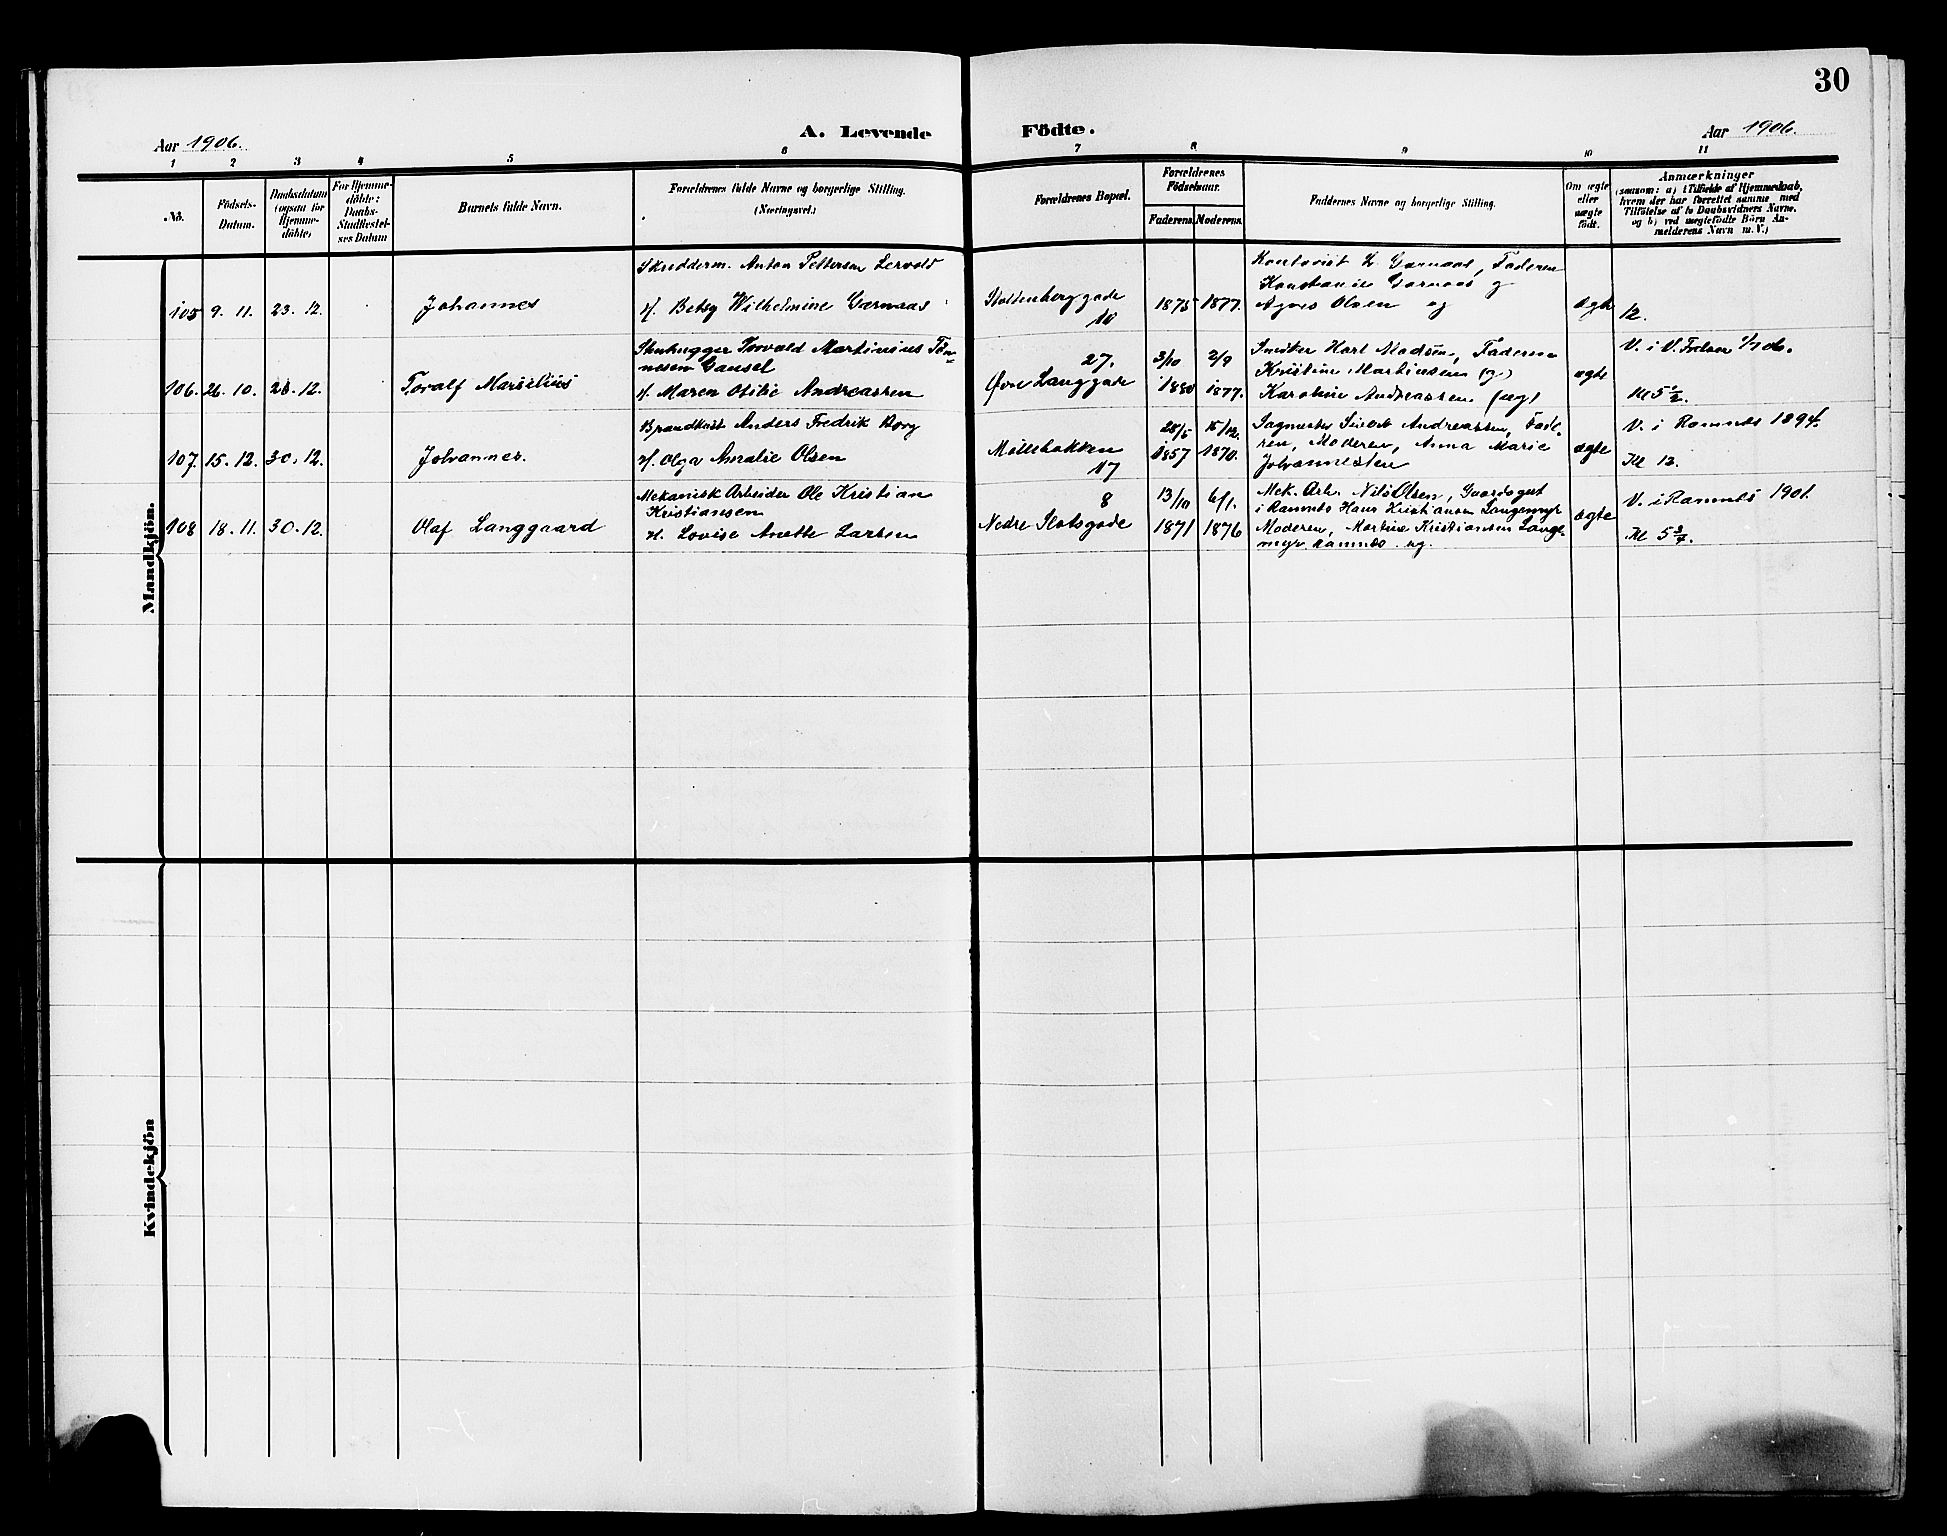 30
Aar 1906.
A. Levende Födte.
Aar 1906.
1 2 3 4 5 6 7 8 9 10 11
No.
Födsels-
Datum.
Daabsdatum
(ogsaa for
Hjemme-
döbte)
For Hjemme-
döbte:
Daabs-
Stadfæstel-
ses Datum
Barnets fulde Navn.
Forældrenes fulde Navne og borgerlige Stilling.
(Næringsvei.)
Forældrenes Bopæl.
Forældrenes
Födselsaar.
Faderens
Moderens.
Faddernes Navne og borgerlige Stilling.
Om ægte
eller
uægte
födt.
Anmærkninger
(saasom: a) i Tilfælde af Hjemmedaab,
hvem der har forrettet samme med
Tilföielse af to Daabsvidners Navne,
og b) ved uægtefödte Börn An-
melderens Navn m. V.)
Mandkjön.
105 9. 11. 23. 12.
Johannes
Skudderm. Anton Pettersen Lervold
H. Betsy Wilhelmine Garnaas
Stoltenberggade
10
1875 1877.
Garnaas, Faderen
Konstanse Garnaas g
Agnes Olsen ug
ægte
12.
106. 26. 10. 26. 12.
Toralf Marselius
Stenhugger Torvald Martinius Tön-
nesen Gausel
H. Maren Otilie Andreassen
27.
Øvre Langgade
3/10 2/9
1880 1877.
Snedker Karl Madsen, Faderen
Kristine Martinsen (g)
Karoline Andreassen (ug)
ægte
V. i V. 1/7 06.
Kl 5 1/2.
107. 15. 12. 30. 12.
Johannes.
Brandkust Anders Fredrik Borg
H. Olga Amalie Olsen
Möllebakken
17
28/5 15/12.
1857 1870.
Sagmester Sivert Andreassen, Fade-
ren, Moderen, Anna Marie
Johannessen
ægte
V. i Ramnes 1894.
Kl 12.
108 18. 11. 30. 12.
Olaf Langgaard
Mekanisk Arbeider Ole Kristian
Kristiansen
H. Lovise Anette Larsen
8
Nedre Slotsgade
13/10 6/1.
1871 1876
Mek. Arb. Nils Olsen, Gaardsgut
i Ramnes Hans Kristiansen Langemyr
Moderen, Martine Kristiansen Lange-
myr Ramnes. ug.
ægte
V. i Ramnes 1901.
Kl 5 3/4.
Kvindekjön